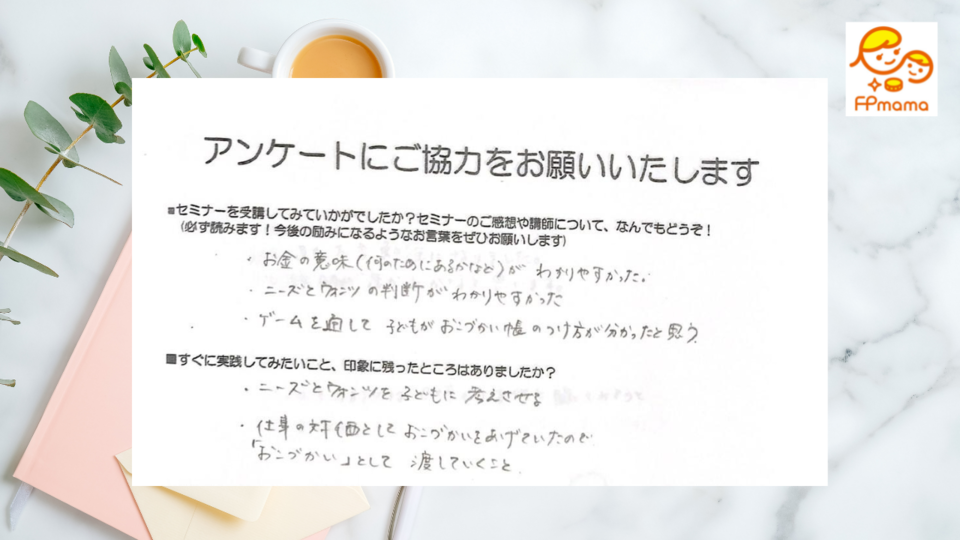 FPmama
アンケートにご協力をお願いいたします
■セミナーを受講してみていかがでしたか？セミナーのご感想や講師について、なんでもどうぞ！
(必ず読みます！今後の励みになるようなお言葉をぜひお願いします)
・お金の意味（何のためにあるかなど）が わかりやすかった。
・ニーズとウォンツの判断がわかりやすかった
・ゲームを通して 子どもがおこづかい帳のつけ方が分かったと思う。
■すぐに実践してみたいこと、印象に残ったところはありましたか？
・ニーズとウォンツを子どもに考えさせる
・仕事の対価としておこづかいをあげていたので、
「おこづかい」として 渡していくこと。